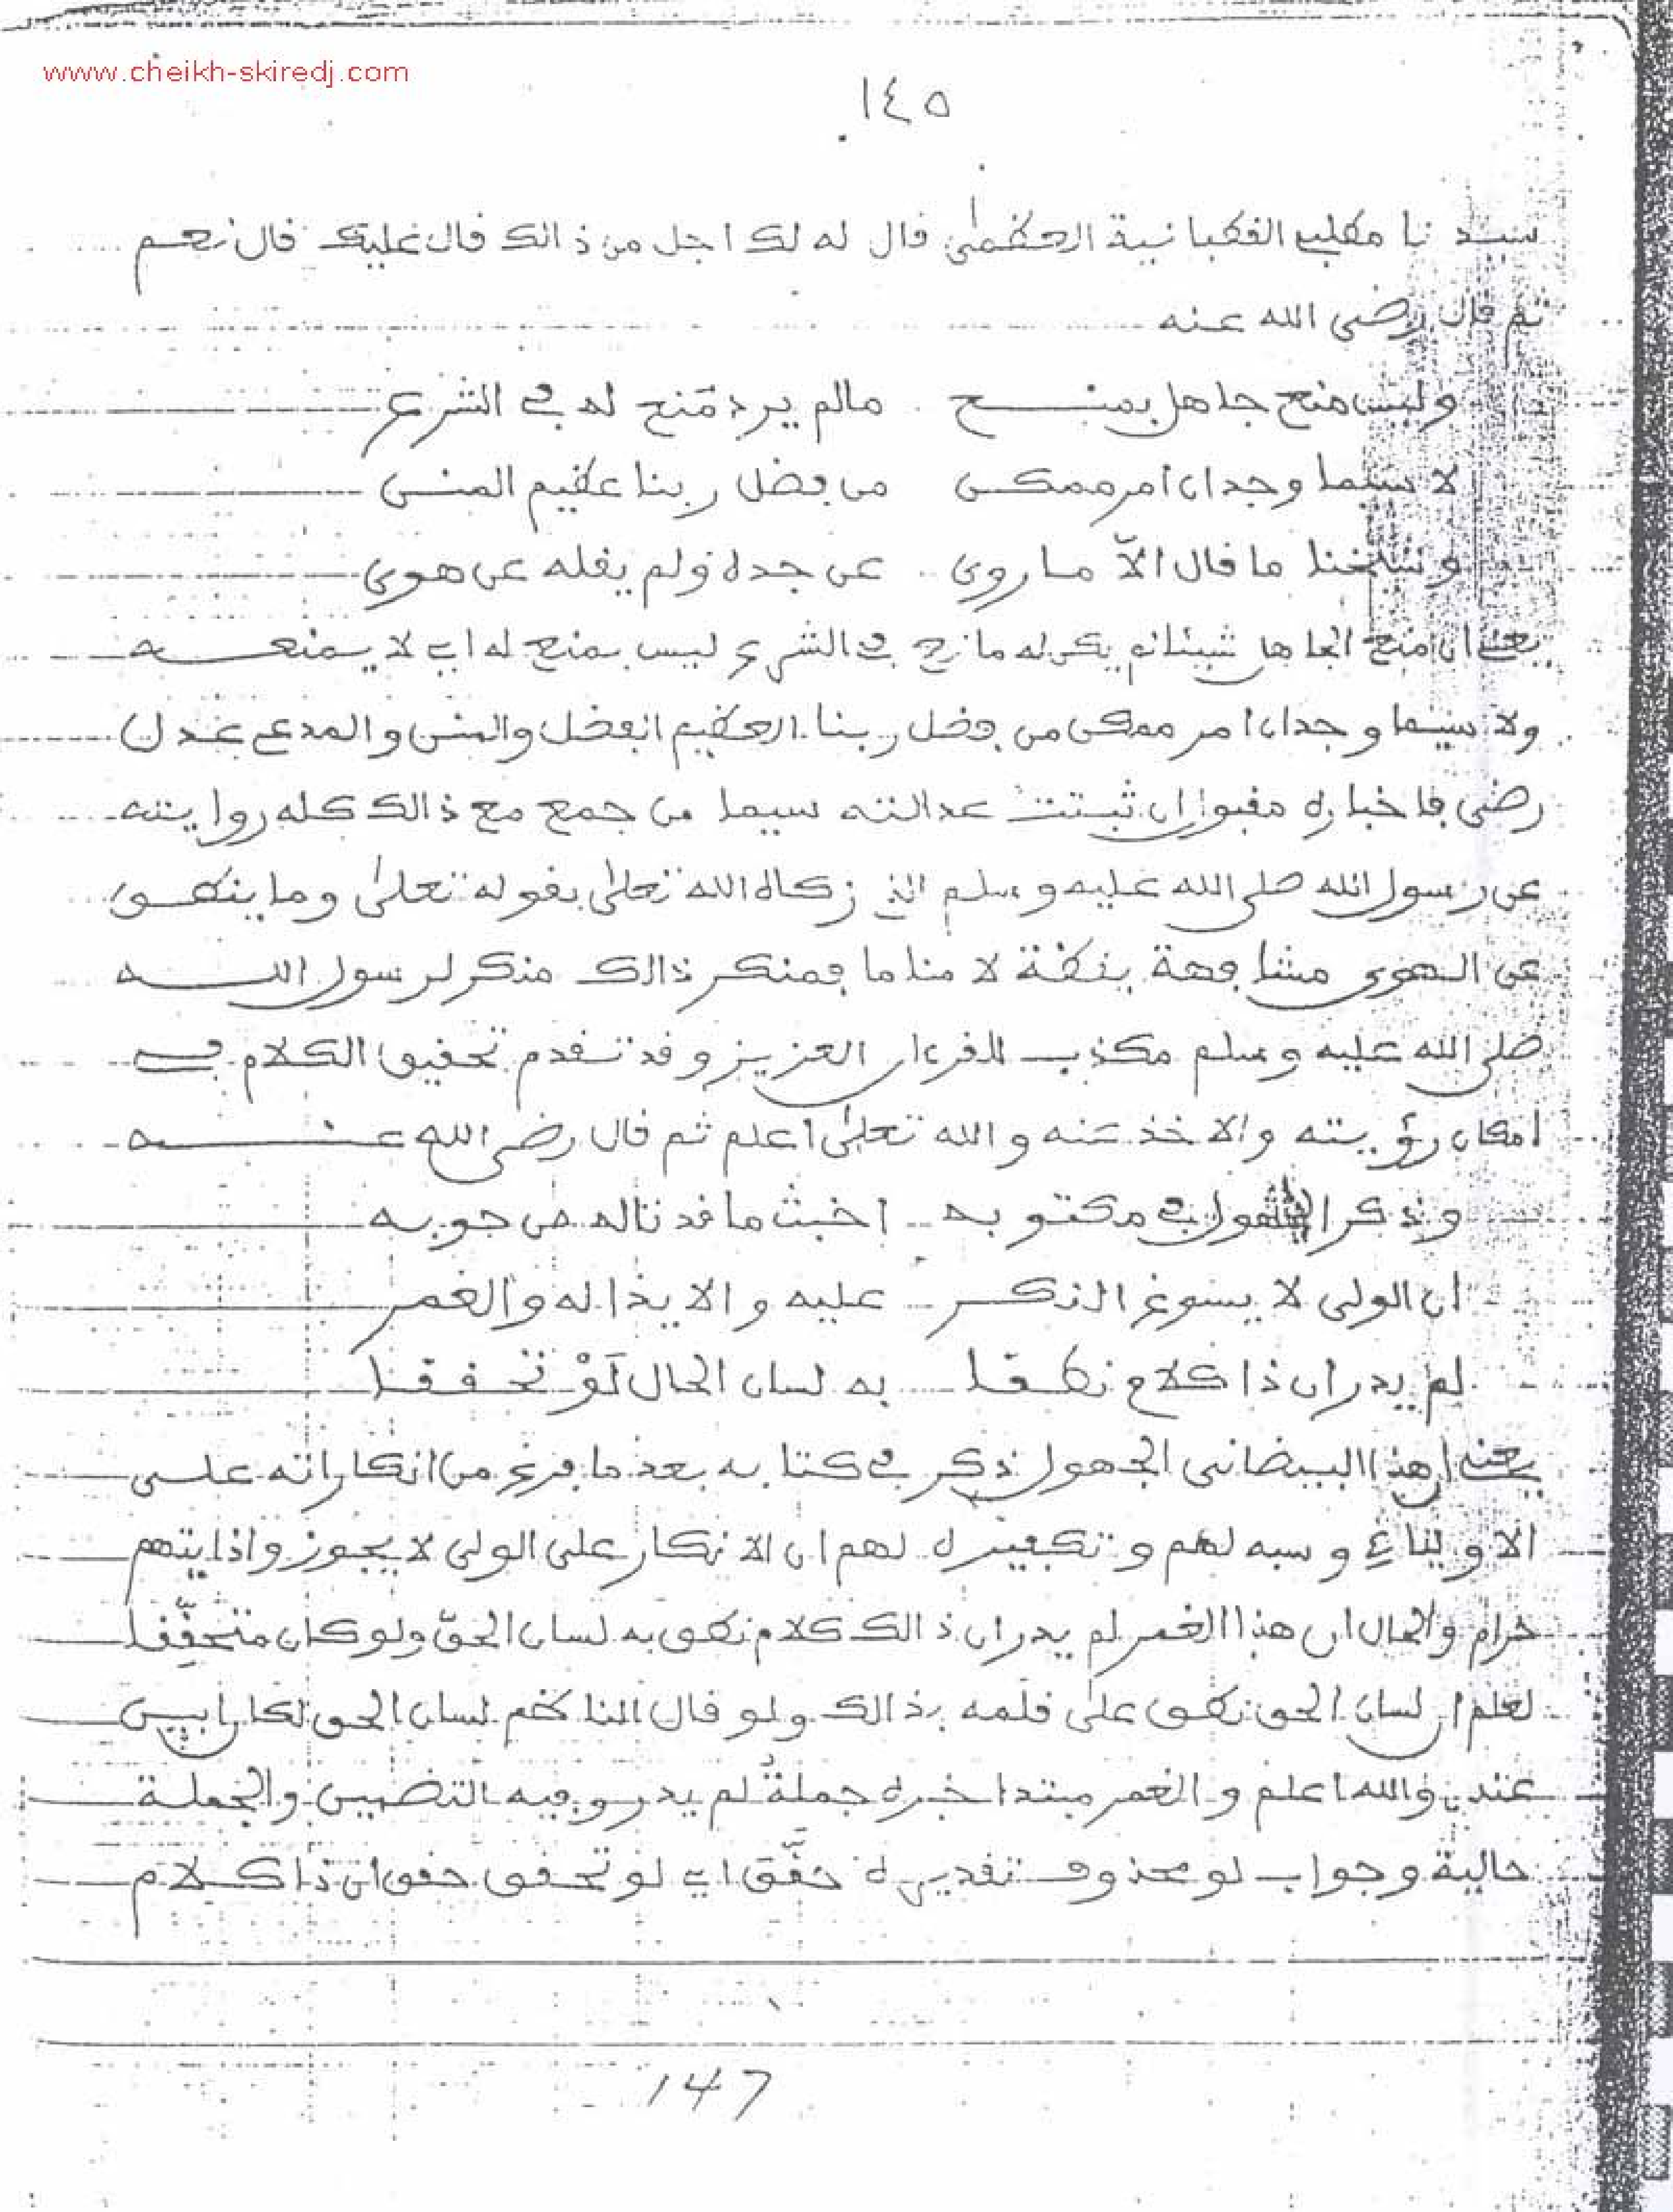 www.cheikh-skiredj.com
١٤٥
سيدنا مطلب القطبانية العظمى قال له لك اجل من ذالك قال غليك قال نعم
ثم قال رضى الله عنه
وليس منع جاهل بمنع مالم يرد منع له في الشرع
لا سيما وجدان امر ممكن من فضل ربنا عظيم المنن
وشيخنا ما قال الّا ما روى عن جده ولم يقله عن هوى
يعنى ان منع الجاهل شيئا لم يكن له مانع في الشرع ليس بمنع له اي لا يمنعه
ولا سيما وجدان امر ممكن من فضل ربنا العظيم الفضل والمنن والمدعى عدل
رضى فاخباره مقبول ان ثبتت عدالته سيما من جمع مع ذالك كله روايته
عن رسول الله صلى الله عليه وسلم الذي زكاه الله تعلى بقوله تعلى وما ينطق
عن الهوى مشافهة يقظة لا مناما فمنكر ذالك منكر لرسول الله
صلى الله عليه وسلم مكذب للقرءان العزيز وقد تقدم تحقيق الكلام في
امكان رؤيته والاخذ عنه والله تعلى اعلم ثم قال رضى الله عنه
وذكر في مكتوبه اخبث ما قد ناله من حوبه
ان الولى لا يسوغ النكر عليه والايذا له والغمر
لم يدر ان ذا كلام نطقا به لسان الحال لَوْ تحققا
يعنى ان هذا البيضانى الجهول ذكر في كتابه بعد ما فرغ من انكاراته على
الاولياء وسبه لهم وتكفيره لهم ان الانكار على الولى لا يجوز واذايتهم
حرام والحال ان هذا الغمر لم يدر ان ذالك كلام نطق به لسان الحقّ ولو كان متحقّقا
لعلم ان لسان الحق نطق على قلمه بذالك ولو قال الناظم لسان الحق لكان ابين
عندى والله اعلم والغمر مبتدا خبره جملةُ لم يدر وفيه التضمين والجملة
حالية وجواب لو محذوف تقديره حقّق اي لو تحقق حقق ان ذا كلام
147